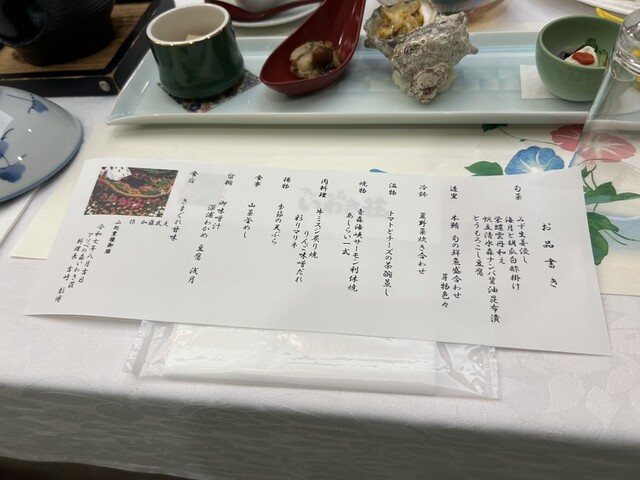 お品書き
旬菜
みず生姜浸し
海月と胡瓜白酢掛け
栄螺雲丹和え
帆立清水森ナンバ醤油昆布漬
とうもろこし豆腐
造里
本鮪 旬の鮮魚盛合わせ
芽物色々
冷鉢
夏野菜炊き合わせ
温物
トマトとチーズの茶碗蒸し
焼物
青森海峡サーモン利休焼
あしらい一式
肉料理
牛ミスジ炙り焼
りんご味噌だれ
彩りマリネ
揚物
季節の天ぷら
食事
山菜釜めし
留椀
御味噌汁
深浦わかめ 豆腐 浅月
食后
きまぐれ甘味
令和七年八月吉日
アソベの森いわき荘
料理長